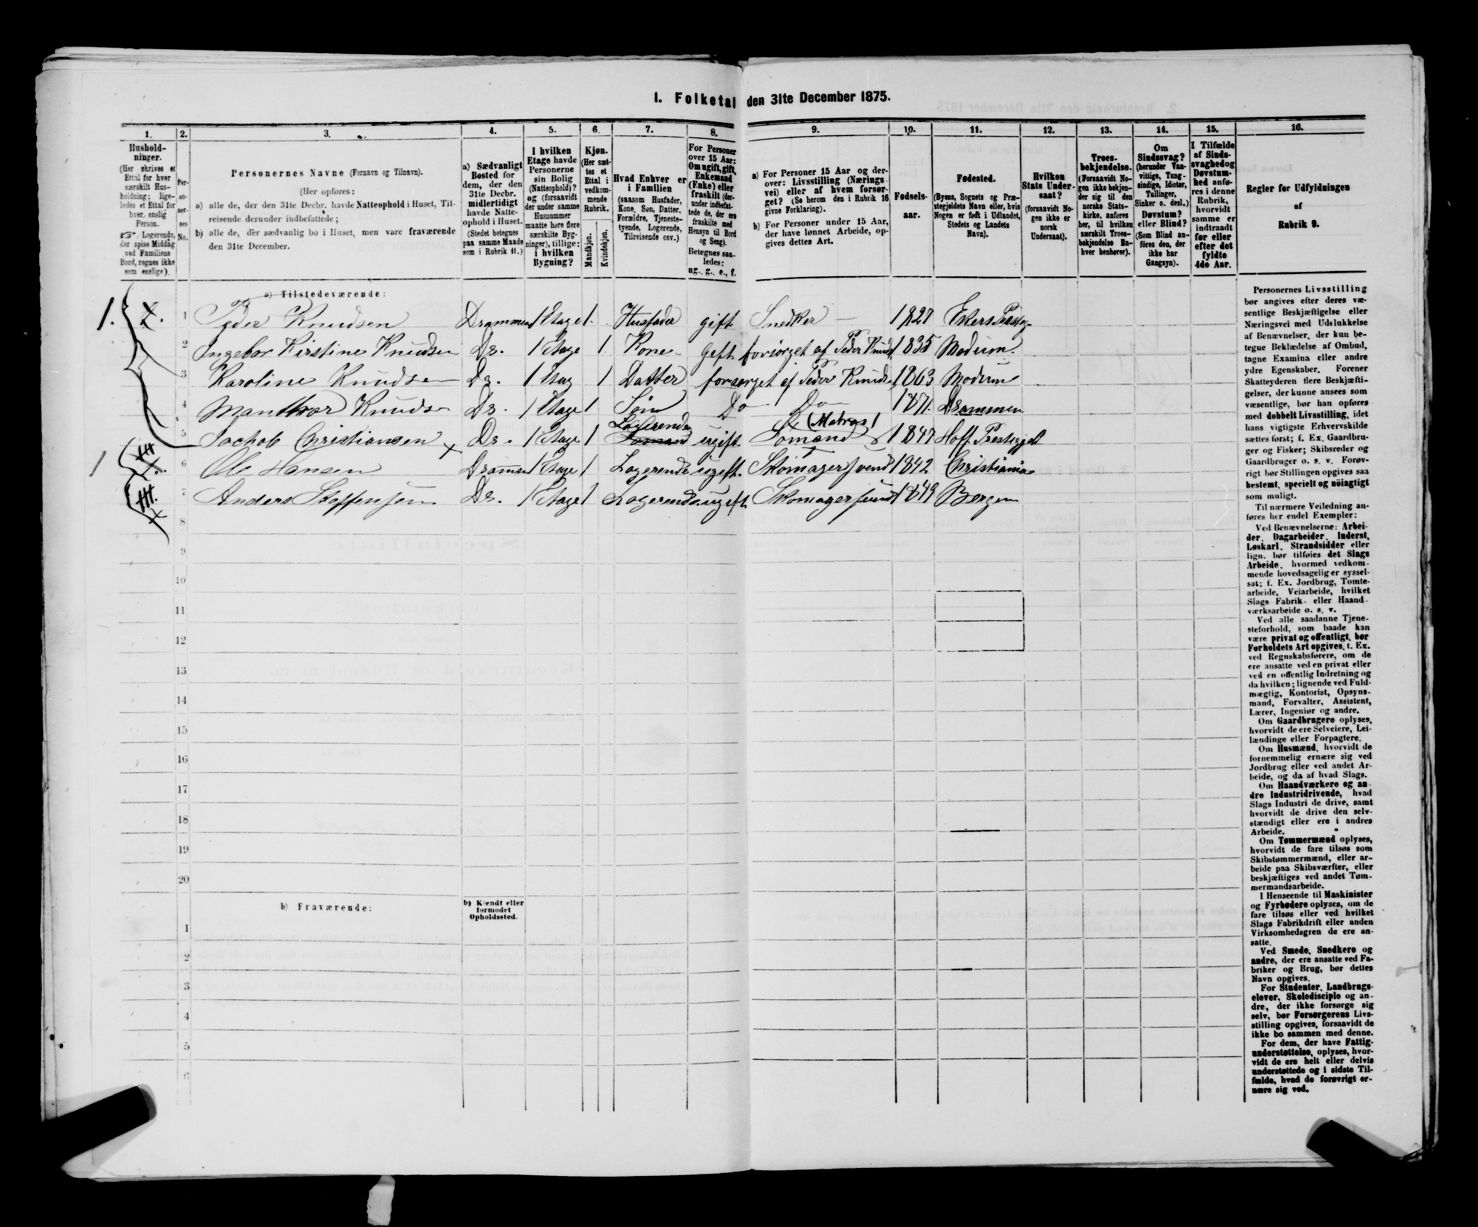 I. Folketal den 31te December 1875.
1. 2. 3. 4. 5. 6. 7. 8. 9. 10. 11. 12. 13. 14. 15. 16.
Hushold-
ninger.
(Her skrives et
Ettal for hver
særskilt Hus-
holdning; lige-
ledes et Ettal for
hver enslig
Person.
☞ Logerende,
der spise Middag
ved Familiens
Bord, regnes ikke
som enslige).
Per-
soner-
nes
No.
Personernes Navne (Fornavn og Tilnavn).
(Her opføres:
a) alle de, der den 31te Decbr. havde Natteophold i Huset, Til-
reisende derunder indbefattede;
b) alle de, der sædvanlig bo i Huset, men vare fraværende
den 31te December.
a) Sædvanligt
Bosted for
dem, der den
31te Decbr.
midlertidigt
havde Natte-
ophold i Huset.
(Stedet betegnes
paa samme Maade
som i Rubrik 11.)
I hvilken
Etage havde
Personerne
sin Bolig
(Natteophold)?
og (forsaavidt
der under samme
Husnummer
maatte høre flere
særskilte Byg-
ninger), tillige:
i hvilken
Bygning?
Kjøn.
(Her sæt-
tes et
Ettal i
vedkom-
mende
Rubrik.
Mandkjøn.
Kvindekjøn.
Hvad Enhver er
i Familien
(saasom Husfader,
Kone, Søn, Datter,
Forældre, Tjeneste-
tyende, Logerende,
Tilreisende osv.)
For Personer
over 15 Aar:
Om ugift, gift,
Enkemand
(Enke) eller
fraskilt (der-
under indbefat-
tede de, der ere
fraskilte med
Hensyn til Bord
og Seng).
Betegnes saa-
ledes:
ug., g., e., f.
a) For Personer 15 Aar og der-
over: Livsstilling (Nærings-
vei) eller af hvem forsør-
get? (Se herom den i Rubrik 16
givne Forklaring).
b) For Personer under 15 Aar,
der have lønnet Arbeide, op-
gives dettes Art.
Fødsels-
aar.
Fødested.
(Byens, Sognets og Præ-
stegjeldets Navn eller, hvis
Nogen er født i Udlandet,
Stedets og Landets
Navn).
Hvilken
Stats Under-
saat?
(forsaavidt No-
gen ikke er
norsk
Undersaat).
Troes-
bekjendelse.
(Forsaavidt No-
gen ikke bekjen-
der sig til den
norske Stats-
kirke, anføres
her, til hvilken
særskilt Troes-
bekjendelse En-
hver henhører).
Om
Sindssvag?
(herunder Van-
vittige, Tung-
sindige, Idioter,
Tullinger,
Sinker o. desl.)
Døvstum?
eller Blind?
(Som Blind an-
føres den, der
ikke har
Gangsyn).
I Tilfælde
af Sinds-
svaghed og
Døvstum-
hed anfø-
res i denne
Rubrik,
hvorvidt
samme er
indtraadt
før eller
efter det
fyldte
4de Aar.
Regler for Udfyldningen
af
Rubrik 9.
a) Tilstedeværende:
1. 1 Peder Knudsen Drammen 1 Etage 1. Husfader gift Snedker 1827 Ekers Præstg.
2 Ingebor Kirstine Knudsen Do. 1 Etage 1 Kone gift forsørget af Peder Knuds 1835 Modum
3 Karoline Knudsen Do. 1 Etag 1 Datter forsørget af Peder Knudsen 1863 Modum
4 Knudsen Do. 1 Etage 1 Søn Do Do 1871 Drammen
5 Jachob Christiansen Do. 1 Etage 1 Logerende Sømand ugift Sømand (Matros) 1847 Hoff Præstegjelt
1 6 Ole Hansen Drammen 1 Etage 1 Logerende ugift Skomagersvend 1842 Christiania
7 Anders Steffensen Do. 1 Etage 1 Logerende ugift Skomagersvend 1849 Bergen
8
9
10
11
12
13
14
15
16
17
18
19
20
b) Fraværende:
b) Kjendt eller
formodet
Opholdssted.
1
2
3
4
5
6
Personernes Livsstilling
bør angives efter deres væ-
sentlige Beskjæftigelse eller
Næringsvei med Udelukkelse
af Benævnelser, der kun be-
tegne Beklædelse af Ombud,
tagne Examina eller andre
ydre Egenskaber. Forener
Skatteyderen flere Beskjæfti-
gelser, der kunne ansees som
væsentlige, bør han opføres
med dobbelt Livsstilling, idet
hans vigtigste Erhvervskilde
sættes først; f. Ex. Gaardbru-
ger og Fisker; Skibsreder og
Gaardbruger o. s. v. Forøv-
rigt bør Stillingen opgives saa
bestemt, specielt og nøiagtigt
som muligt.
Til nærmere Veiledning an-
føres her endel Exempler:
Ved Benævnelserne: Arbei-
der, Dagarbeider, Inderst,
Løskarl, Strandsidder eller
lign. bør tilføies det Slags
Arbeide, hvormed vedkom-
mende hovedsagelig er syssel-
sat; f. Ex. Jordbrug, Tomte-
arbeide, Veiarbeide, hvilket
Slags Fabrik- eller Haand-
værksarbeide o. s. v.
Ved alle saadanne Tjene-
steforhold, som baade kan
være privat og offentligt, bør
Forholdets Art opgives, t. Ex.
ved Regnskabsførere, om de
ere ansatte ved en privat eller
ved en offentlig Indretning og
da hvilken; lignende ved Fuld-
mægtig, Kontorist, Opsyns-
mand, Forvalter, Assistent,
Lærer, Ingeniør og andre.
Om Gaardbrugere oplyses,
hvorvidt de ere Selveiere, Lei-
lændinge eller Forpagtere.
Om Husmænd, hvorvidt de
fornemmelig ernære sig ved
Jordbrug eller ved andet Ar-
beide, og da af hvad Slags.
Om Haandværkere og an-
dre Industridrivende, hvad
Slags Industri de drive, samt
hvorvidt de drive den selv-
stændigt eller ere i andres
Arbeide.
Om Tømmermænd oplyses,
hvorvidt de fare tilsøs som
Skibstømmermænd, eller ar-
beide paa Skibsværfter, eller
beskjæftiges ved andet Tøm-
mermandsarbeide.
I Henseende til Maskinister
og Fyrbødere oplyses, om de
fare tilsøs eller ved hvilket
Slags Fabrikdrift eller anden
Virksomhedsgren de ere an-
satte.
Ved Smede, Snedkere og
andre, der ere ansatte ved Fa-
briker og Brug, bør dettes
Navn opgives.
For Studenter, Landbrugs-
elever, Skoledisciple og an-
dre, der ikke forsørge sig
selv, bør Forsørgerens Livs-
stilling opgives, forsaavidt de
ikke bo sammen med denne.
For dem, der have Fattig-
understøttelse, oplyses, hvor-
vidt de ere helt eller delvis
understøttede og i sidste Til-
fælde, hvad de forøvrigt er-
nære sig ved.